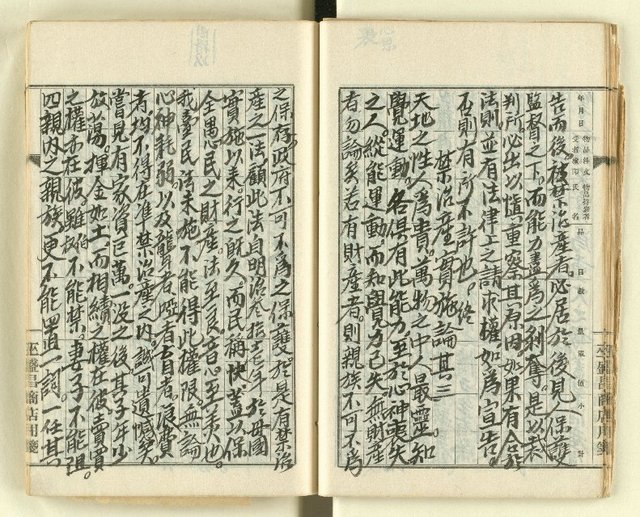 告而後禁治產者必居於後見人保護
監督之下而能力盡為之剝奪是以裁
判所必出以慎重察其原因如果有合
法則並有法律上之請求權如為宣告
否則有所不許也
禁治產實施論其三
天地之性人為貴萬物之中人最靈知
覺運動各得有此能力至於心神喪失
之人縱能運動而知覺力已失無財產
者勿論矣若有財產者則親族不可不為
之保存政府不可不為之保護於是有禁治
產之一法顧此法自明治 年於母國
實施以來行之既久而民稱快蓋以保
全愚民之財產法至良意至美也
我臺民法未施不能得此權限無論
心神耗弱以及聾者啞者盲者浪費
者均不得在準禁治產之內誠可遺憾矣
嘗見有家資巨萬一沒之後其子年少
放蕩揮金如土而相續之權在彼賣買
之權亦在彼雖 不能禁妻子不能阻
四親內之親族更不能置一詞一任其
年月日